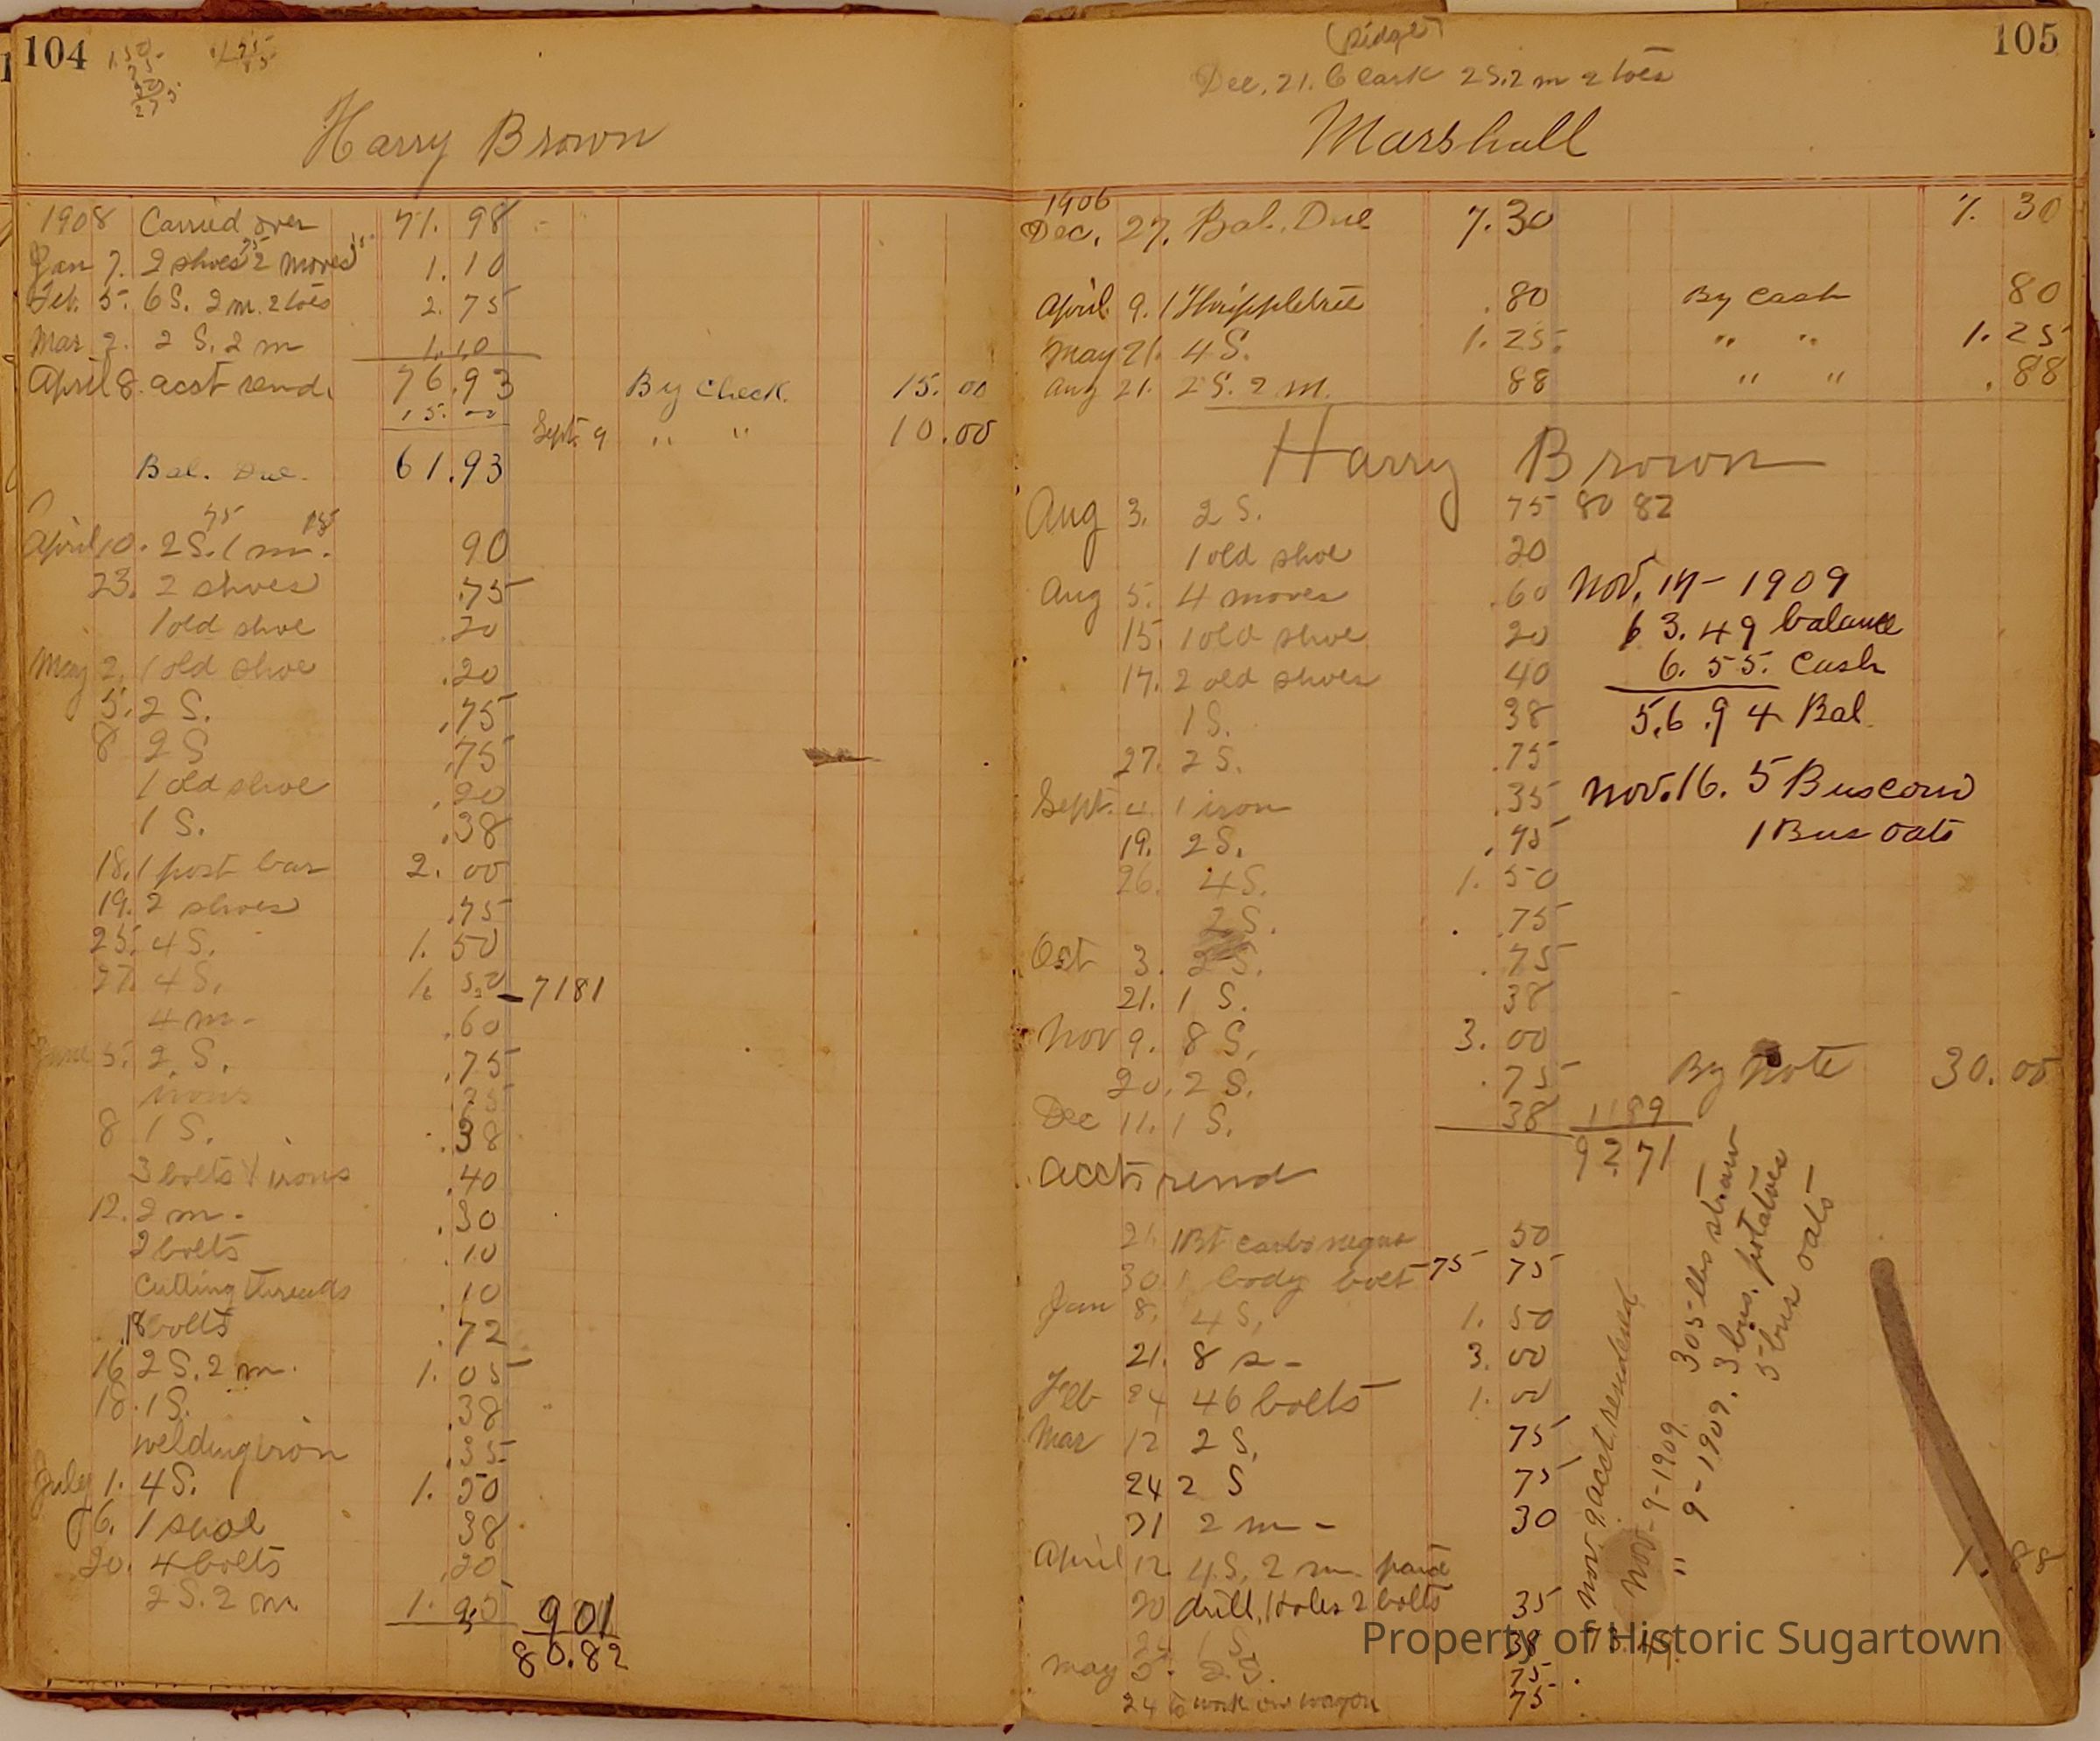 104
1.50
Harry Brown
1908 Carried over 71.98
Jan 7. 2 shoes 75 2 moves 1.10
Feb. 5. 6 S. 2 m. 2 toes 2.75
Mar 2. 2 S. 2 m 1.10
April 8. acct rend. 76.93 By Check. 15.00
15.00 Sept. 9 " " 10.00
Bal. Due. 61.93
75 15
April 10. 2 S. 1 m. 90
23. 2 shoes .75
1 old shoe .20
May 2. 1 old shoe .20
5. 2 S. .75
8 2 S .75
1 old shoe .20
1 S. .38
18. 1 post bar 2.00
19. 2 shoes .75
25. 4 S. 1.50
27. 4 S. 1.50 - 7181
4 m - .60
June 5. 2 S. .75
irons
8 1 S. .38
3 bolts & irons .40
12. 2 m - .30
2 bolts .10
Cutting threads .10
18 bolts .72
16 2 S. 2 m. 1.05
18. 1 S. .38
welding iron .35
July 1. 4 S. 1.50
6. 1 shoe 38
20. 4 bolts .20
2 S. 2 m 1.05 901
80.82
105
(Ridge)
Dec. 21. Clark 2 S. 2 m 2 toes
Marshall
1906
Dec. 27. Bal. Due 7.30 7.30
April 9. 1 Thrippletree .80 By Cash 80
May 21. 4 S. 1.25. " " 1.25
Aug 21. 2 S. 2 m. 88 " " .88
Harry Brown
Aug 3. 2 S. 75 80 82
1 old shoe 20
Aug 5. 4 moves .60 Nov. 14 - 1909
15. 1 old shoe 20 63.49 balance
17. 2 old shoes 40 6.55. Cash
1 S. 38 56.94 Bal.
27. 2 S. .75
Sept. 4. 1 iron .35 Nov. 16. 5 Bus corn
19. 2 S. .75 1 Bus oats
26. 4 S. 1.50
2 S. .75
Oct 3. 2 S. .75
21. 1 S. 38
Nov 9. 8 S. 3.00
20. 2 S. .75 By Note 30.00
Dec 11. 1 S. 38 1189
92.71
acct. rend
21 50
30 1 body bolt 75 75
Jan 8. 4 S. 1.50
21. 8 s - 3.00
Feb 24 46 bolts 1.00
Mar 12 2 S. 75
24 2 S 75
31 2 m - 30
April 12 4 S. 2 m paid 1.88
20 drill, holes 2 bolts 35
1 S. 38
May 5. 2 S. 75.
24 to work on wagon 75
Nov. 9. acct. rendered
Nov - 9 - 1909. 305 lbs straw
" 9 - 1909. 3 bus. potatoes
5 bus oats
Property of Historic Sugartown